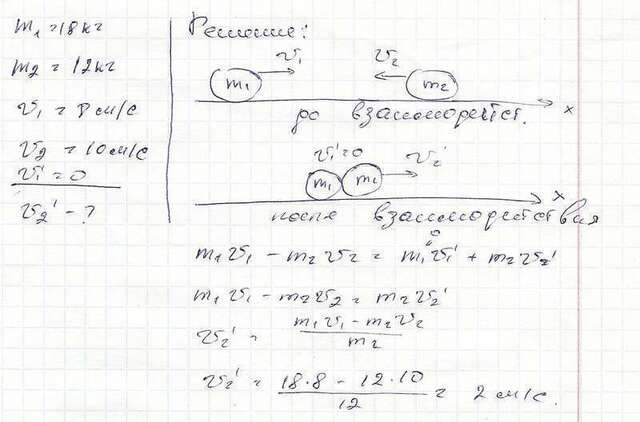 m₁ = 18 кг
m₂ = 12 кг
v₁ = 8 см/с
v₂ = 10 см/с
v₁' = 0
v₂' - ?
Решение:
v₁ v₂
m₁ m₂
до взаимодейст. x
v₁'=0 v₂'
m₁ m₂
после взаимодействия x
0
m₁v₁ - m₂v₂ = m₁v₁' + m₂v₂'
m₁v₁ - m₂v₂ = m₂v₂'
v₂' = (m₁v₁ - m₂v₂)/m₂
v₂' = (18·8 - 12·10)/12 = 2 см/с.